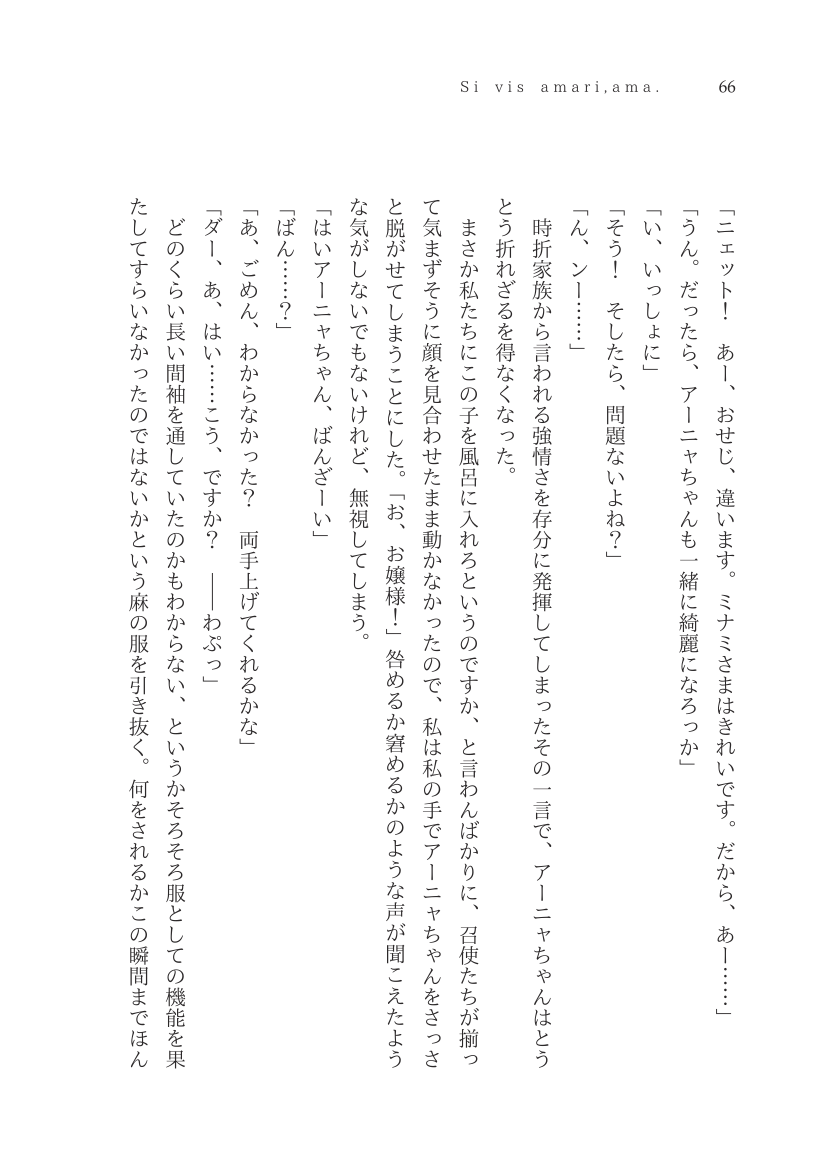 Si vis amari,ama.
66
「ニェット!　あー、おせじ、違います。ミナミさまはきれいです。だから、あー……」
「うん。だったら、アーニャちゃんも一緒に綺麗になろっか」
「い、いっしょに」
「そう!　そしたら、問題ないよね?」
「ん、ンー……」
　時折家族から言われる強情さを存分に発揮してしまったその一言で、アーニャちゃんはとう
とう折れざるを得なくなった。
　まさか私たちにこの子を風呂に入れろというのですか、と言わんばかりに、召使たちが揃っ
て気まずそうに顔を見合わせたまま動かなかったので、私は私の手でアーニャちゃんをさっさ
と脱がせてしまうことにした。「お、お嬢様!」咎めるか窘めるかのような声が聞こえたよう
な気がしないでもないけれど、無視してしまう。
「はいアーニャちゃん、ばんざーい」
「ばん……?」
「あ、ごめん、わからなかった?　両手上げてくれるかな」
「ダー、あ、はい……こう、ですか?　――わぷっ」
　どのくらい長い間袖を通していたのかもわからない、というかそろそろ服としての機能を果
たしてすらいなかったのではないかという麻の服を引き抜く。何をされるかこの瞬間までほん